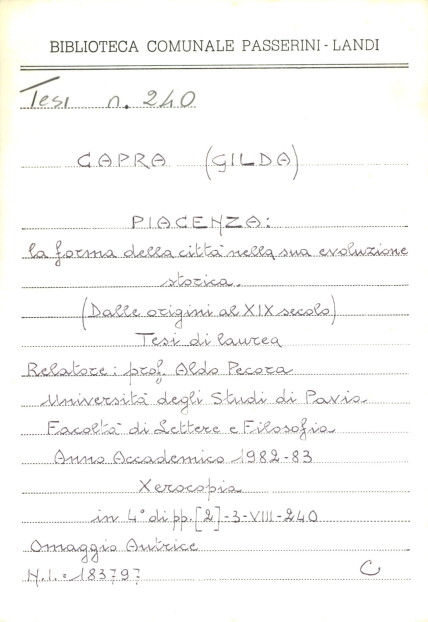 BIBLIOTECA COMUNALE PASSERINI - LANDI
Tesi n. 240
CAPRA (GILDA)
PIACENZA:
la forma della città nella sua evoluzione
storica.
(Dalle origini al XIX secolo)
Tesi di laurea
Relatore: prof. Aldo Pecora
Università degli Studi di Pavia
Facoltà di Lettere e Filosofia
Anno Accademico 1982-83
Xerocopia
in 4° di pp. [2]-3-VIII-240
Omaggio Autrice
N.I.: 183797 C